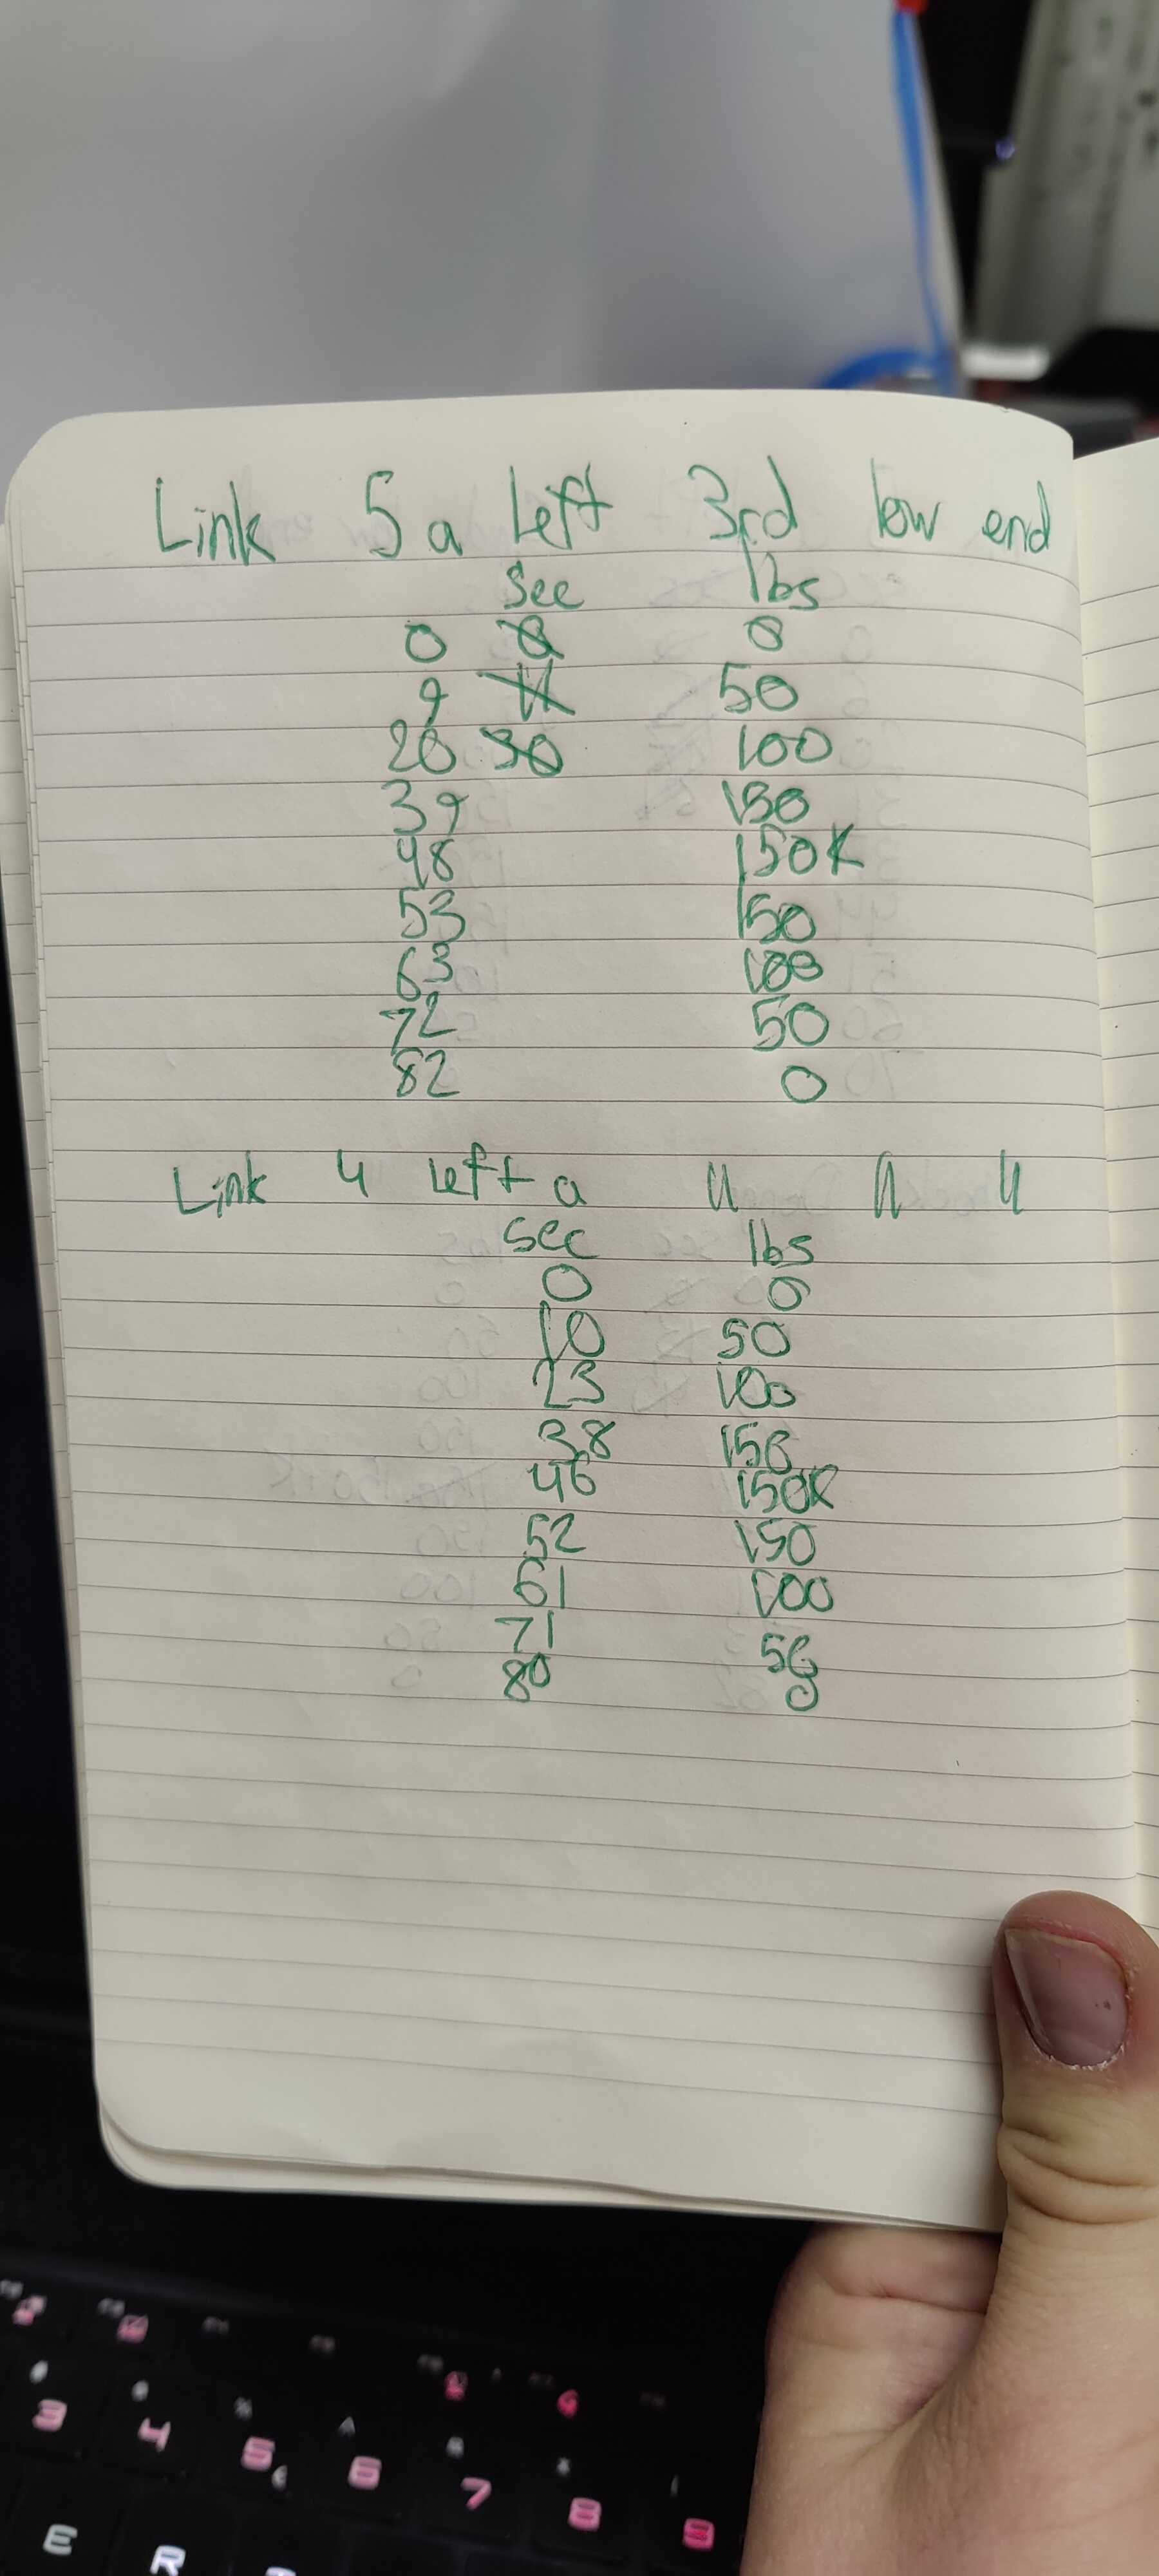 Link 5 a Left 3rd low end
sec lbs
0 0 0
9 11 50
20 30 100
39 150
48 150K
53 150
63 100
72 50
82 0
Link 4 Left a
sec lbs
0 0
10 50
23 100
38 150
46 150K
52 150
61 100
71 50
80 0
3 4 5 € 6 7 8 9
E R